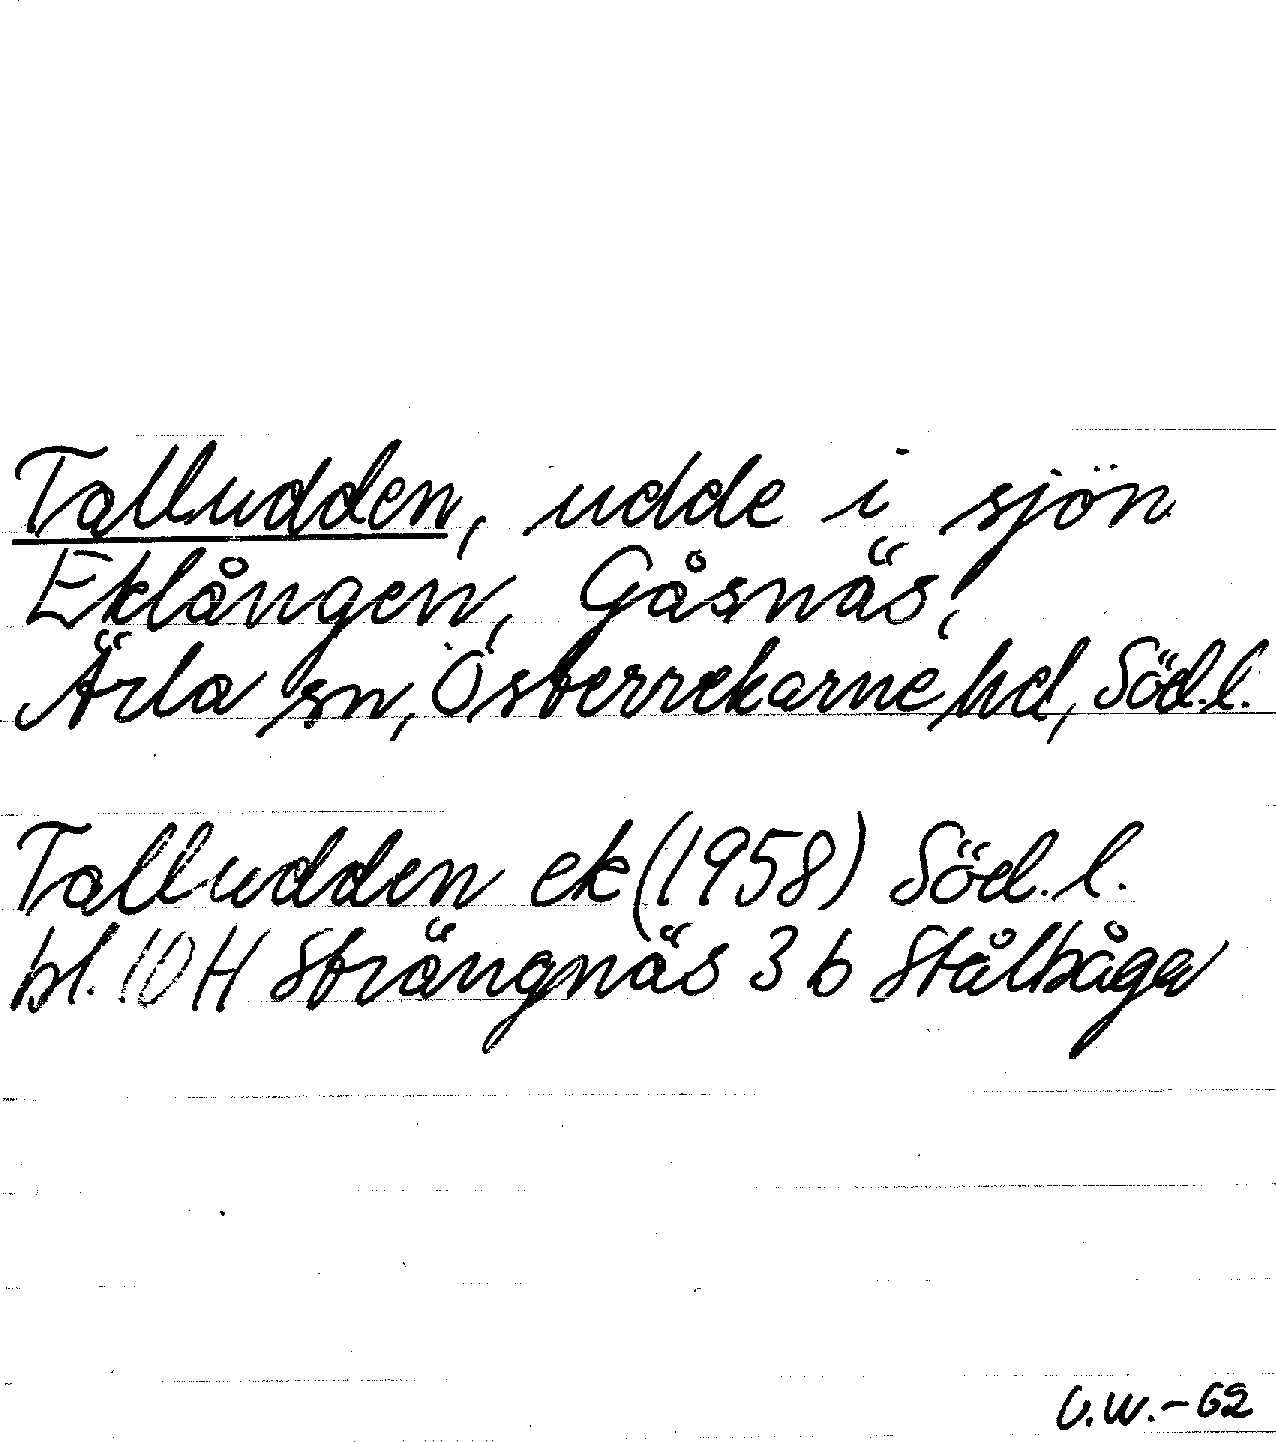 Talludden, udde i sjön
Eklången, Gåsnäs,
Ärla sn, Österrekarne hd, Söd.l.
Talludden ek (1958) Söd.l.
bl. 10 H Strängnäs 3 b Stålbåga
U.W.-62